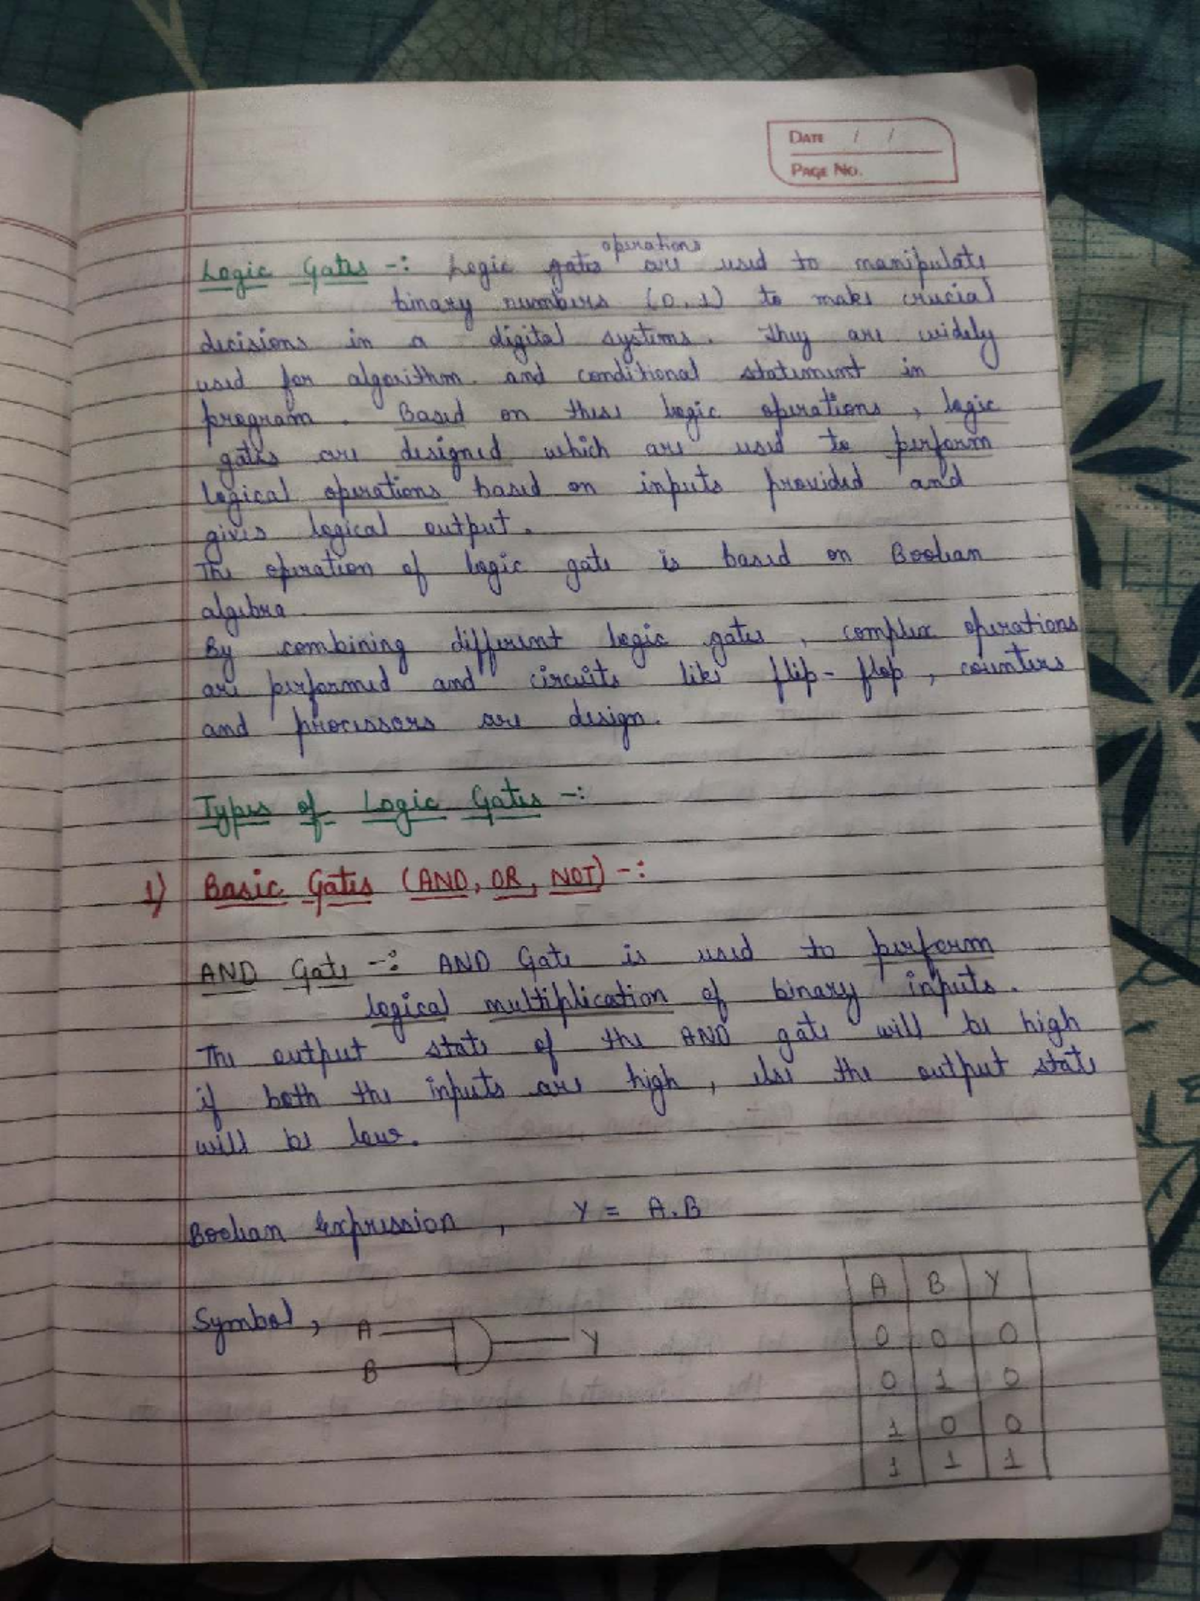 DATE / /
PAGE NO.
operations
Logic Gates -: Logic gates are used to manipulate
binary numbers (0,1) to make crucial
decisions in a digital systems. They are widely
used for algorithm and conditional statement in
program. Based on these logic operations, logic
gates are designed which are used to perform
logical operations based on inputs provided and
gives logical output.
The operation of logic gate is based on Boolean
algebra.
By combining different logic gates, complex operations
are performed and circuits like flip-flop, counters
and processors are design.
Types of Logic Gates -:
1) Basic Gates (AND, OR, NOT) -:
AND Gate -: AND Gate is used to perform
logical multiplication of binary inputs.
The output state of the AND gate will be high
if both the inputs are high, else the output state
will be low.
Boolean Expression, Y = A.B
A B Y
Symbol, A Y
B
0 0 0
0 1 0
1 0 0
1 1 1